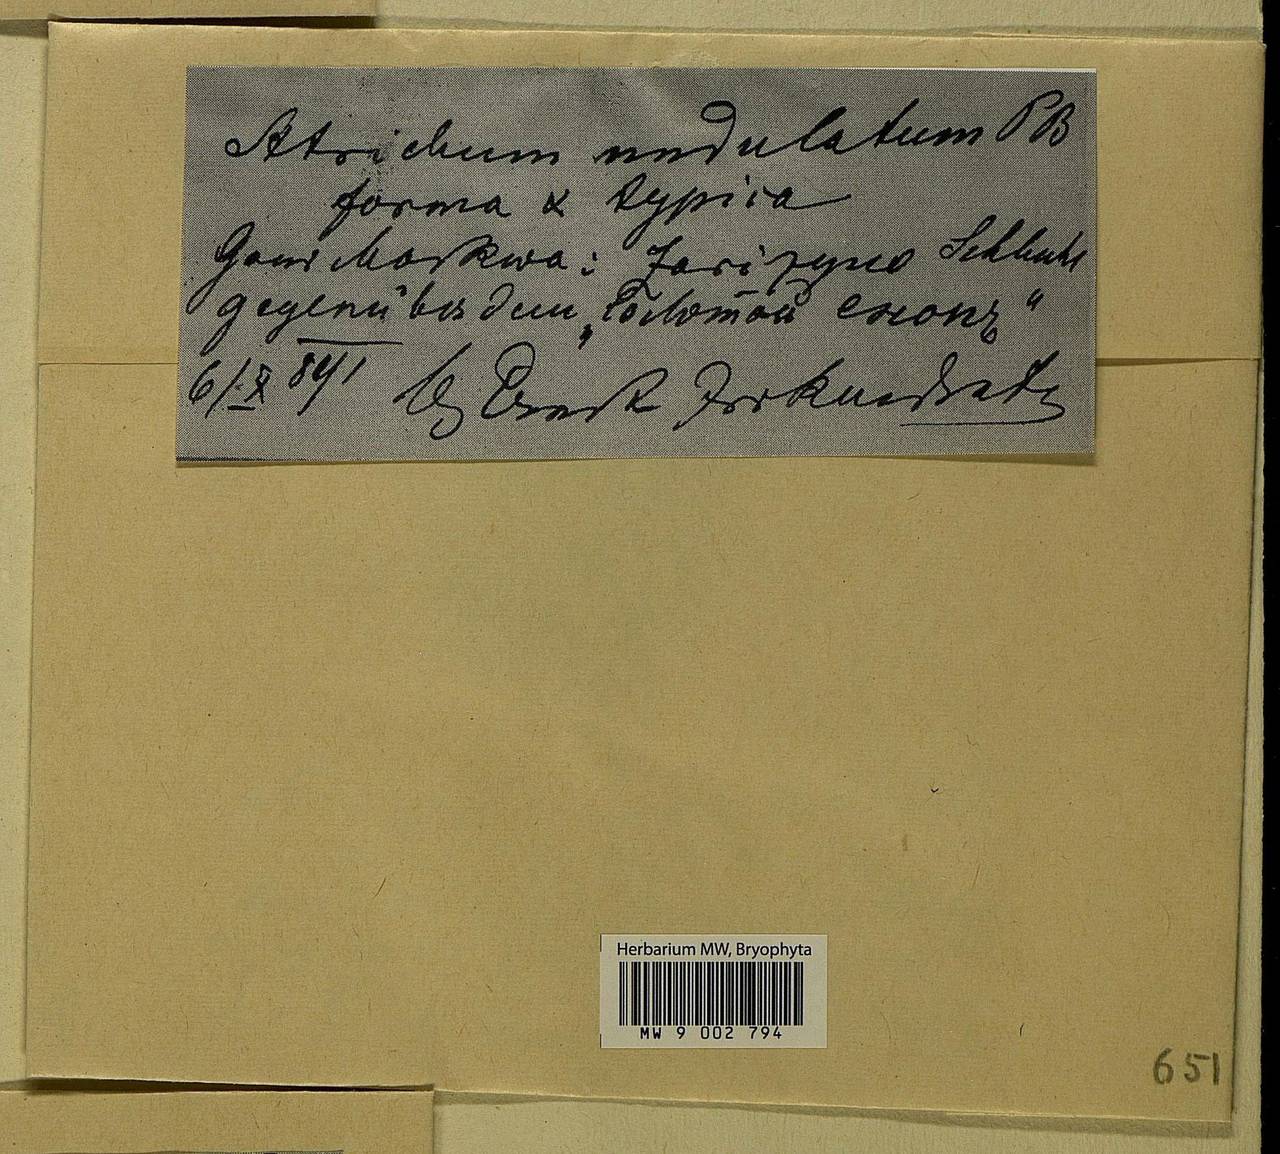 Atrichum undulatum PB
forma α typica
Gouv Moskwa: Zarizyno Schlucht
gegenüber dem „Золотой снопъ“
6/X 891 Ernst
Herbarium MW, Bryophyta
MW 9 002 794
651